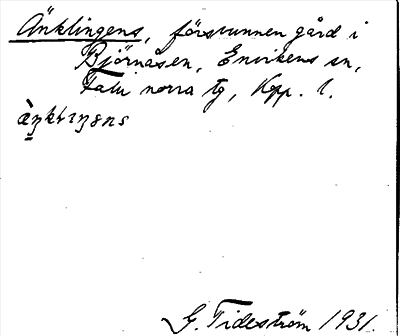 Änklingens, försvunnen gård i
Björnåsen, Envikens sn,
Falu norra tg, Kpp. l.
G. Tideström 1931.